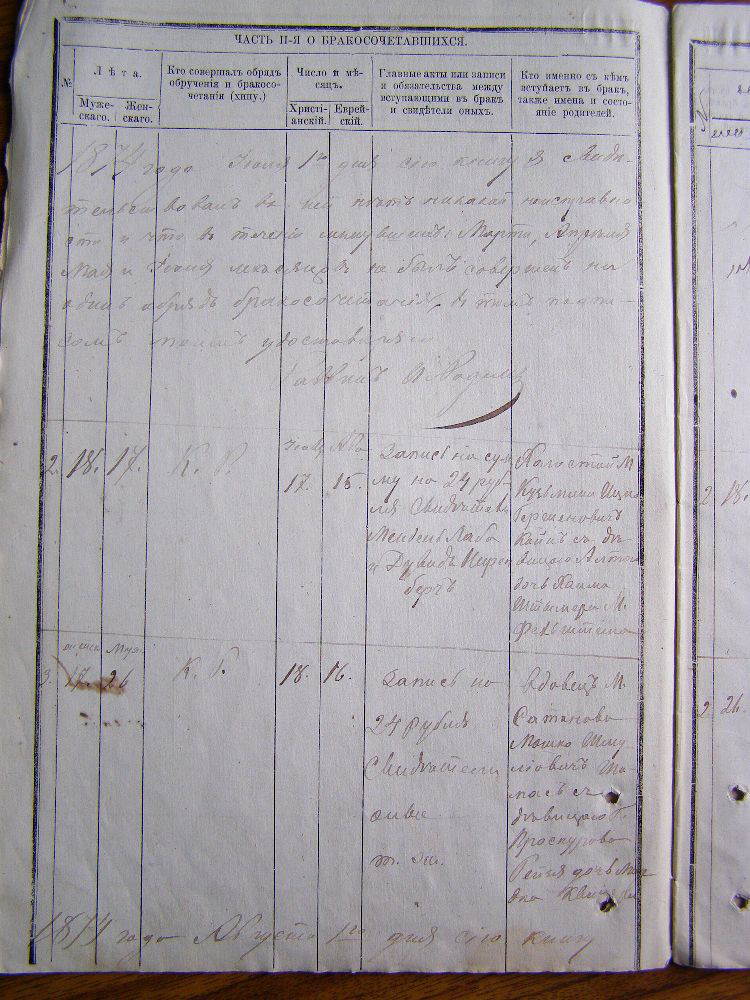 ЧАСТЬ II-Я О БРАКОСОЧЕТАВШИХСЯ.
№
Лѣта.
Муже-
скаго.
Жен-
скаго.
Кто совершалъ обрядъ
обрученія и бракосо-
четанія (хипу.)
Число и мѣ-
сяцъ.
Христі-
анскій.
Еврей-
скій.
Главные акты или записи
и обязательства между
вступающими въ бракъ
и свидѣтели оныхъ.
Кто именно съ кѣмъ
вступаетъ въ бракъ,
также имена и состо-
яніе родителей.
1874 года Іюля 1го дня сію книгу я Свидѣ-
тельствовалъ въ ней нѣтъ никакой неисправно
сти и что въ теченіи минувшихъ: Марта, Апрѣля
Мая и Іюня мѣсяцовъ не былъ совершенъ ни
одинъ обрядъ бракосочитанія, въ томъ подпи-
сомъ моимъ удостовѣряю
Раввинъ
2. 18. 17. К. Р.
17. 15.
Запись на сум
му на 24 руб-
ля Свидѣтель
и Дувидъ
бергъ
Холостой М.
Кузьмина Ицко
Гершковичъ
съ дѣ-
вицею
дочь Хаима
М.
Фельштена
3. 17. 26 К. Р. 18. 16.
Запись на
24 рубля
Свидѣтели
оные
т. ж.
Вдовецъ М.
Сатанова
Мошко Шму
ліовичъ
съ
дѣвицею Г.
Проскурова
Рейзя дочь
1874 года Августа 1го дня сію книгу
2 18.
2 26.